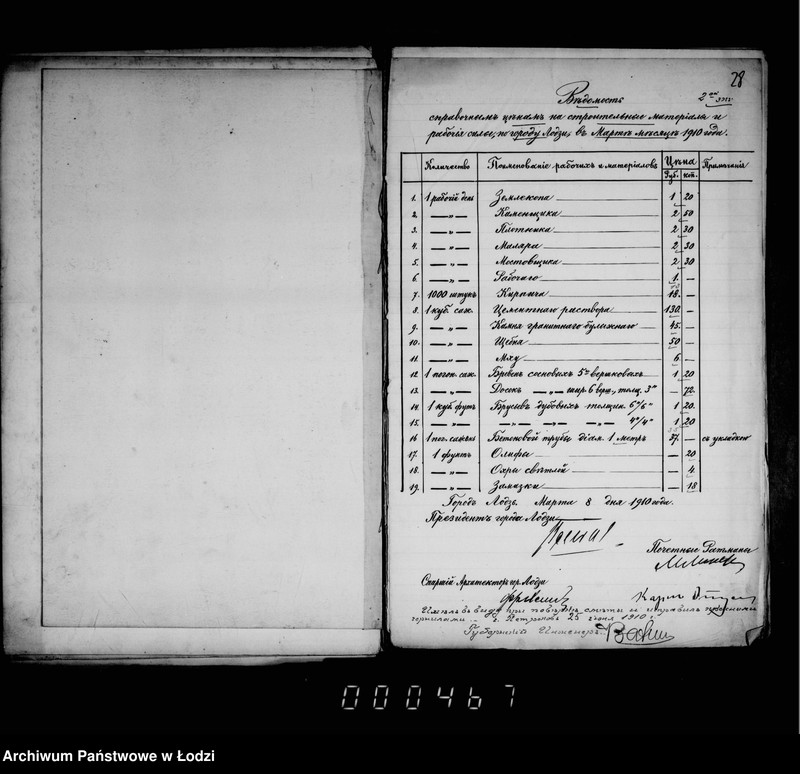 28
2ой экз.
Вѣдомость
справочнымъ цѣнамъ на строительные матеріалы и
рабочія силы, по городу Лодзи, въ Мартѣ мѣсяцѣ 1910 года.
Количество Поименованіе рабочихъ и матеріаловъ Цѣна Примѣчанія
Руб. коп.
1. 1 рабочій день Землекопа 1 20
2. — „ — Каменьщика 2 50
3. — „ — Плотника 2 30
4. — „ — Маляра 2 30
5. — „ — Мостовщика 2 30
6. — „ — Рабочаго 1. —
7. 1000 штукъ Кирпича 18. —
8. 1 куб. саж. Цементнаго раствора 130. —
9. — „ — Камня гранитнаго булыжнаго 45. —
10. — „ — Щебня 50 —
11. — „ — Мху 6. —
12. 1 погон. саж. Бревенъ сосновыхъ 5ти вершковыхъ 1 20
13. — „ — Досокъ — „ — шир. 6 верш., толщ. 3" — 72.
14. 1 куб. футъ Брусьевъ дубовыхъ толщин. 6"/6" 1 20.
15. — „ — — „ — — „ — — „ — 4"/4" 1 20
16. 1 пог. сажень Бетоновой трубы діам. 1 метръ 37. — съ укладкой
17. 1 фунтъ Олифы — 20
18. — „ — Охры свѣтлой — 4.
19. — „ — Замазки — 18
Городъ Лодзь. Марта 8 дня 1910 года.
Президентъ города Лодзи
Почетные Ратманы
Старшій Архитекторъ гор. Лодзи
Карлъ
Имѣлъ въ виду при повѣркѣ смѣты и исправилъ красными
чернилами. г. Петроковъ 25 іюня 1910 г.
Губернскій Инженеръ
000467
Archiwum Państwowe w Łodzi